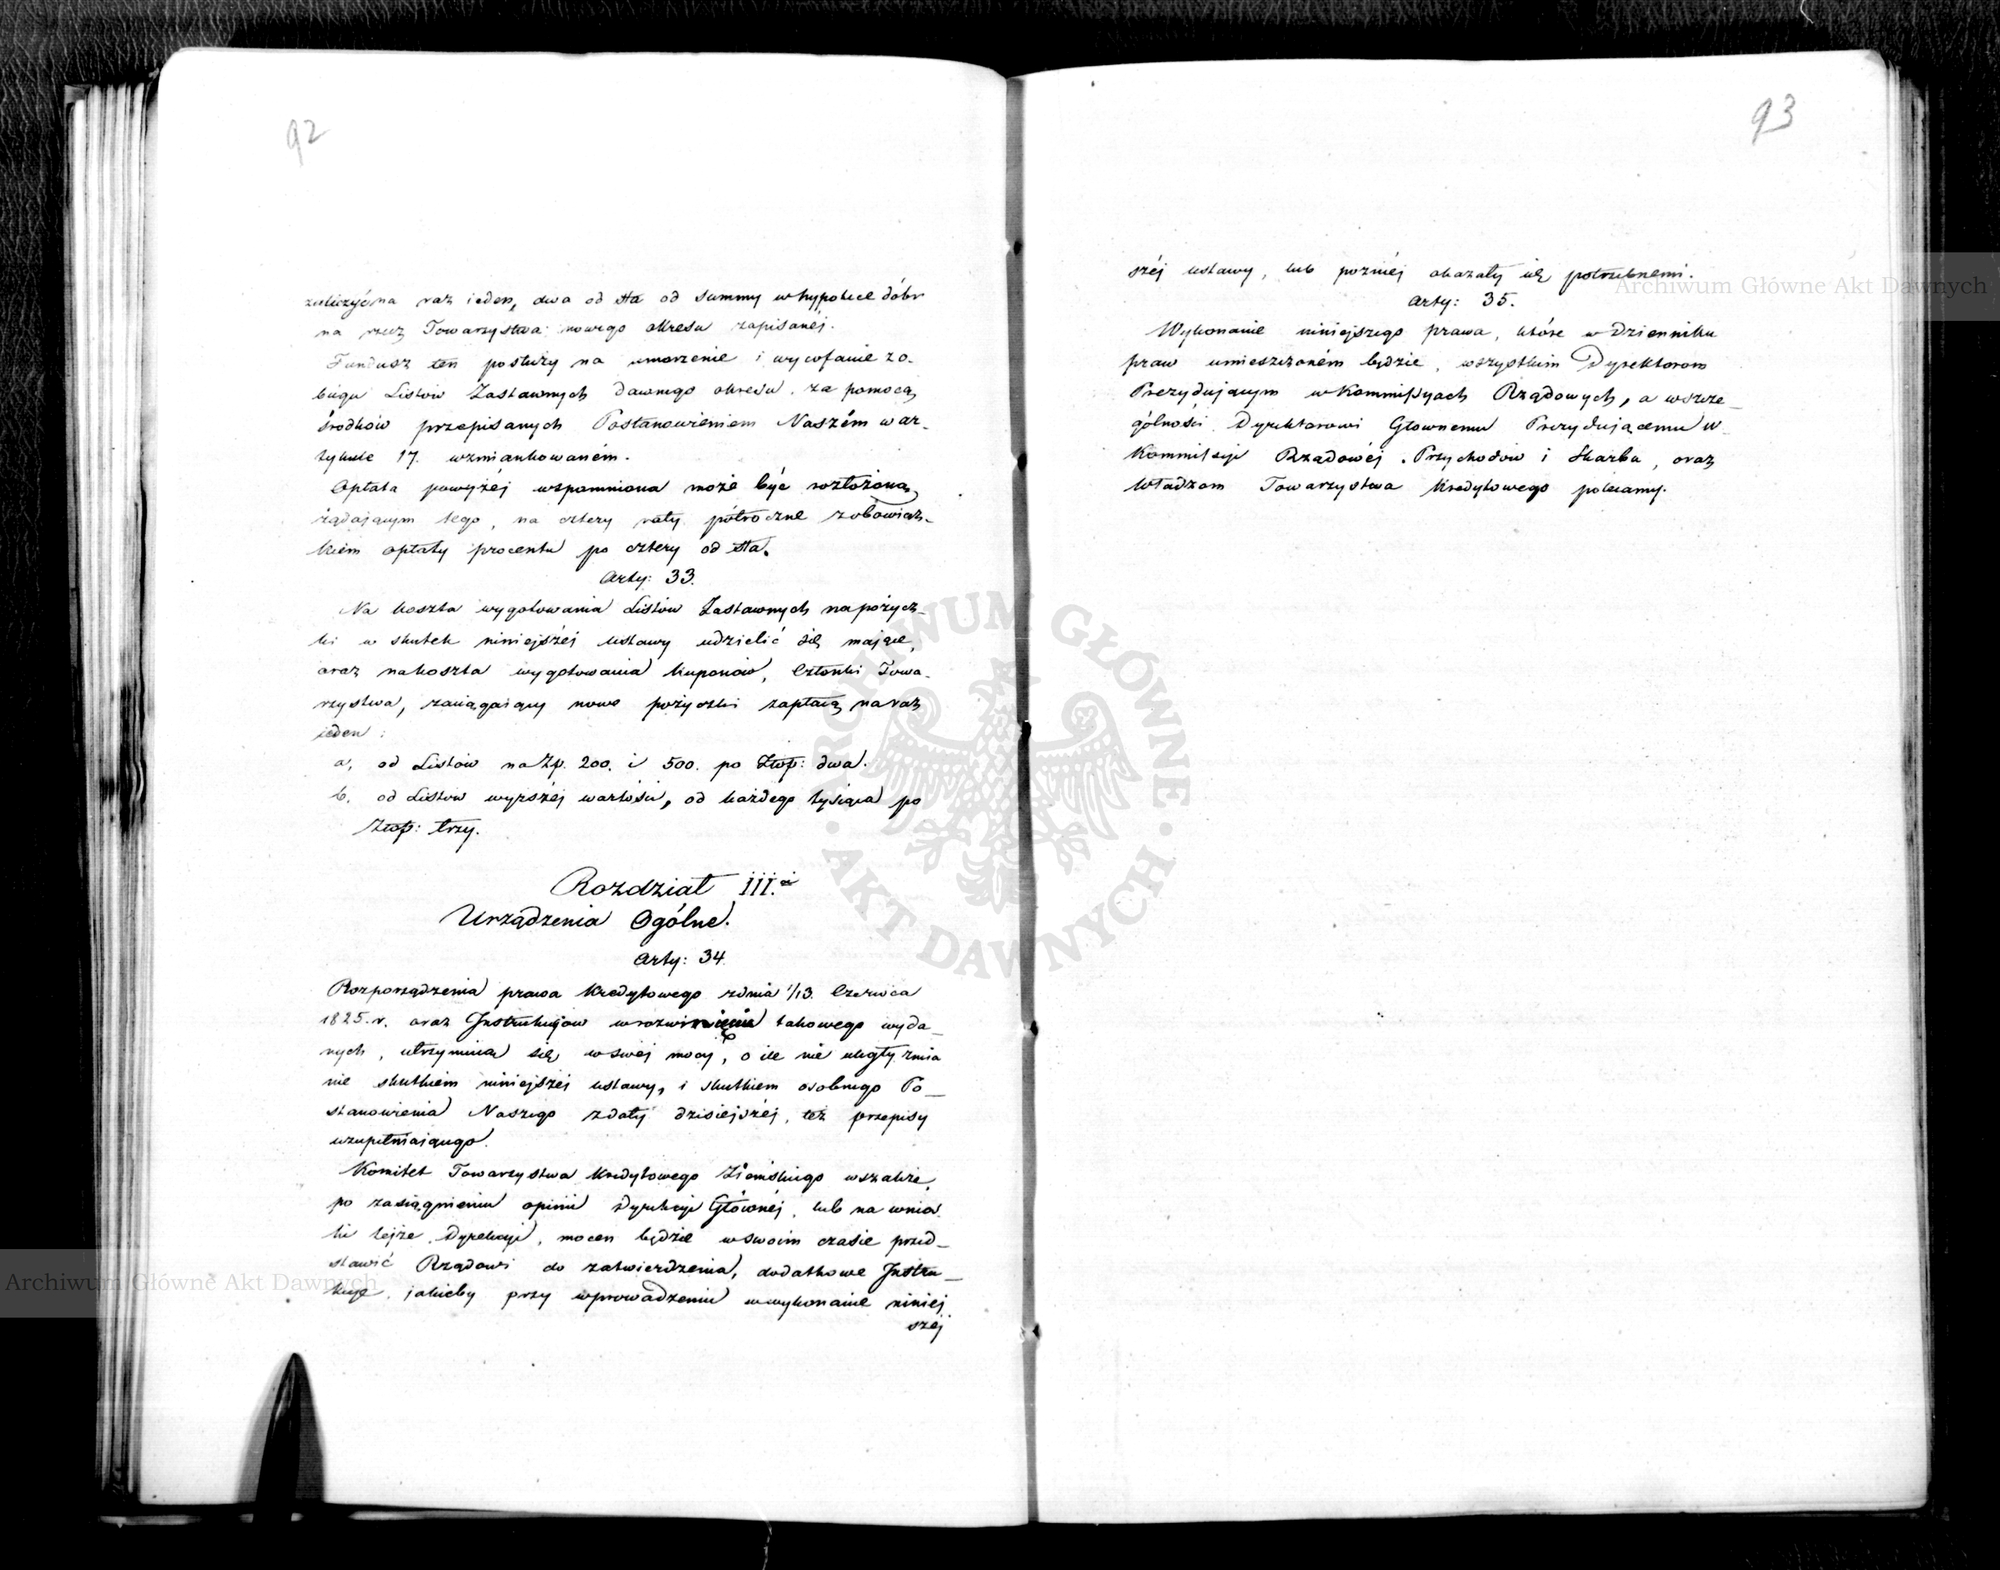 92
zaliczyć na raz ieden, dwa od sta od summy w hypotece dóbr
na rzecz Towarzystwa nowego okresu zapisanéj.
Fundusz ten posłuży na umorzenie i wycofanie z o-
biegu Listów Zastawnych dawnego okresu za pomocą
środków przepisanych Postanowieniem Naszém w ar-
tykule 17. wzmiankowaném.
Opłata powyżéj wspomniona może być rozłożoną
żądającym tego, na cztery raty półroczne z obowiąz-
kiem opłaty procentu po cztery od sta.
Arty: 33.
Na koszta wygotowania Listów Zastawnych na pożycz-
ki w skutek niniejszéj ustawy udzielić się mające,
oraz na koszta wygotowania kuponów, Członki Towa-
rzystwa, zaciągaiący nowe pożyczki zapłacą na raz
ieden:
a, od Listów na Zp. 200. i 500. po Złop: dwa.
b. od Listów wyższéj wartości, od każdego tysiąca po
Złop: trzy.
Rozdział III.i
Urządzenia Ogólne.
Arty: 34.
Rozporządzenia prawa Kredytowego z dnia 1/13. Czerwca
1825. r. oraz Instrukcyow w rozwinięciu takowego wyda-
nych, utrzymuią się w swéj mocy, o ile nie uległy zmia
nie skutkiem niniejszéj ustawy, i skutkiem osobnego Po-
stanowienia Naszego z daty dzisiejszéj, też przepisy
uzupełniaiącego.
Komitet Towarzystwa Kredytowego Ziemskiego wszakże,
po zasiągnieniu opinii Dyrekcyi Głównéj, lub na wnios
ki tejże Dyrekcyi, mocen będzie w swoim czasie przed-
stawić Rządowi do zatwierdzenia, dodatkowe Instru-
kcye, jakieby przy wprowadzeniu w wykonanie niniej
széj
93
széj ustawy, lub poźniéj okazały się potrzebnemi.
Arty: 35.
Wykonanie niniejszego prawa, które w Dzienniku
praw umieszczoném będzie, wszystkim Dyrektorom
Prezyduiącym w Kommissyach Rządowych, a w szcze-
gólności Dyrektorowi Głownemu Prezydującemu w
Kommissyi Rządowéj Przychodów i Skarbu, oraz
Władzom Towarzystwa Kredytowego polecamy.
Archiwum Główne Akt Dawnych
Archiwum Główne Akt Dawnych
ARCHIWUM GŁÓWNE AKT DAWNYCH